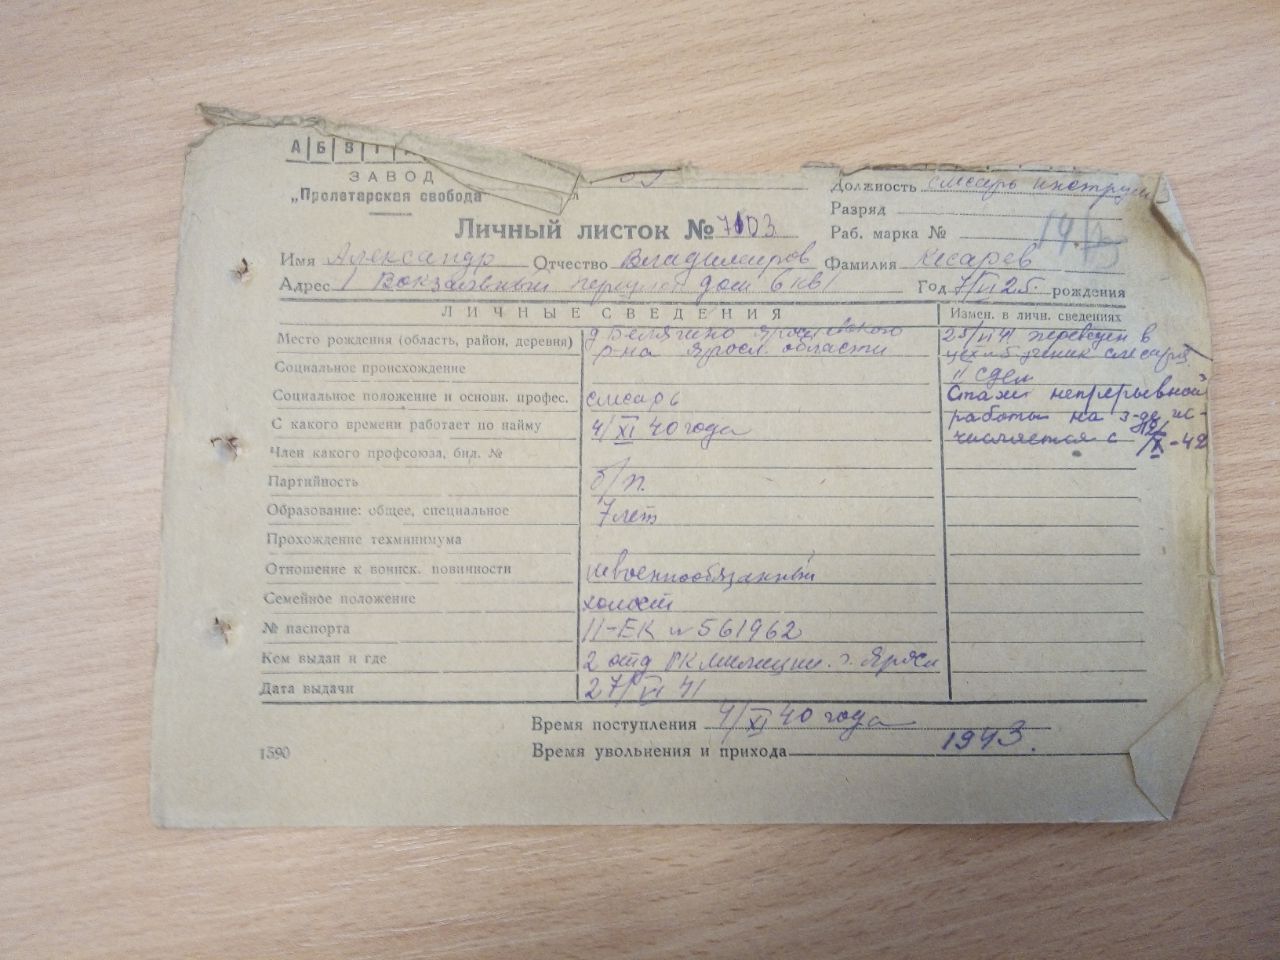 А Б В Г
ЗАВОД
„Пролетарская свобода"
Должность слесарь инструм
Разряд
Раб. марка №
Личный листок № 7103
Имя Александр Отчество Владимиров Фамилия Кисарев
Адрес 1 Вокзальный переулок дом 6 кв 1 Год 7/VI 25 рождения
ЛИЧНЫЕ СВЕДЕНИЯ
Измен. в личн. сведениях
Место рождения (область, район, деревня) д Белягино Ярославского
р-на Яросл. области
25/VI 41 переведен в
цех ученик слесаря
Социальное происхождение
II сдел
Социальное положение и основн. профес. слесарь
Стаж непрерывной
работы на з-де ис-
числяется с 19/X-42
С какого времени работает по найму 4/XI 40 года
Член какого профсоюза, бил. №
Партийность б/п.
Образование: общее, специальное 7 лет
Прохождение техминимума
Отношение к воинск. повинности невоеннообязанный
Семейное положение холост
№ паспорта II-ЕК № 561962
Кем выдан и где 2 отд РК Милиции. г. Яросл
Дата выдачи 27/VI 41
Время поступления 4/XI 40 года
Время увольнения и прихода 1943.
1590